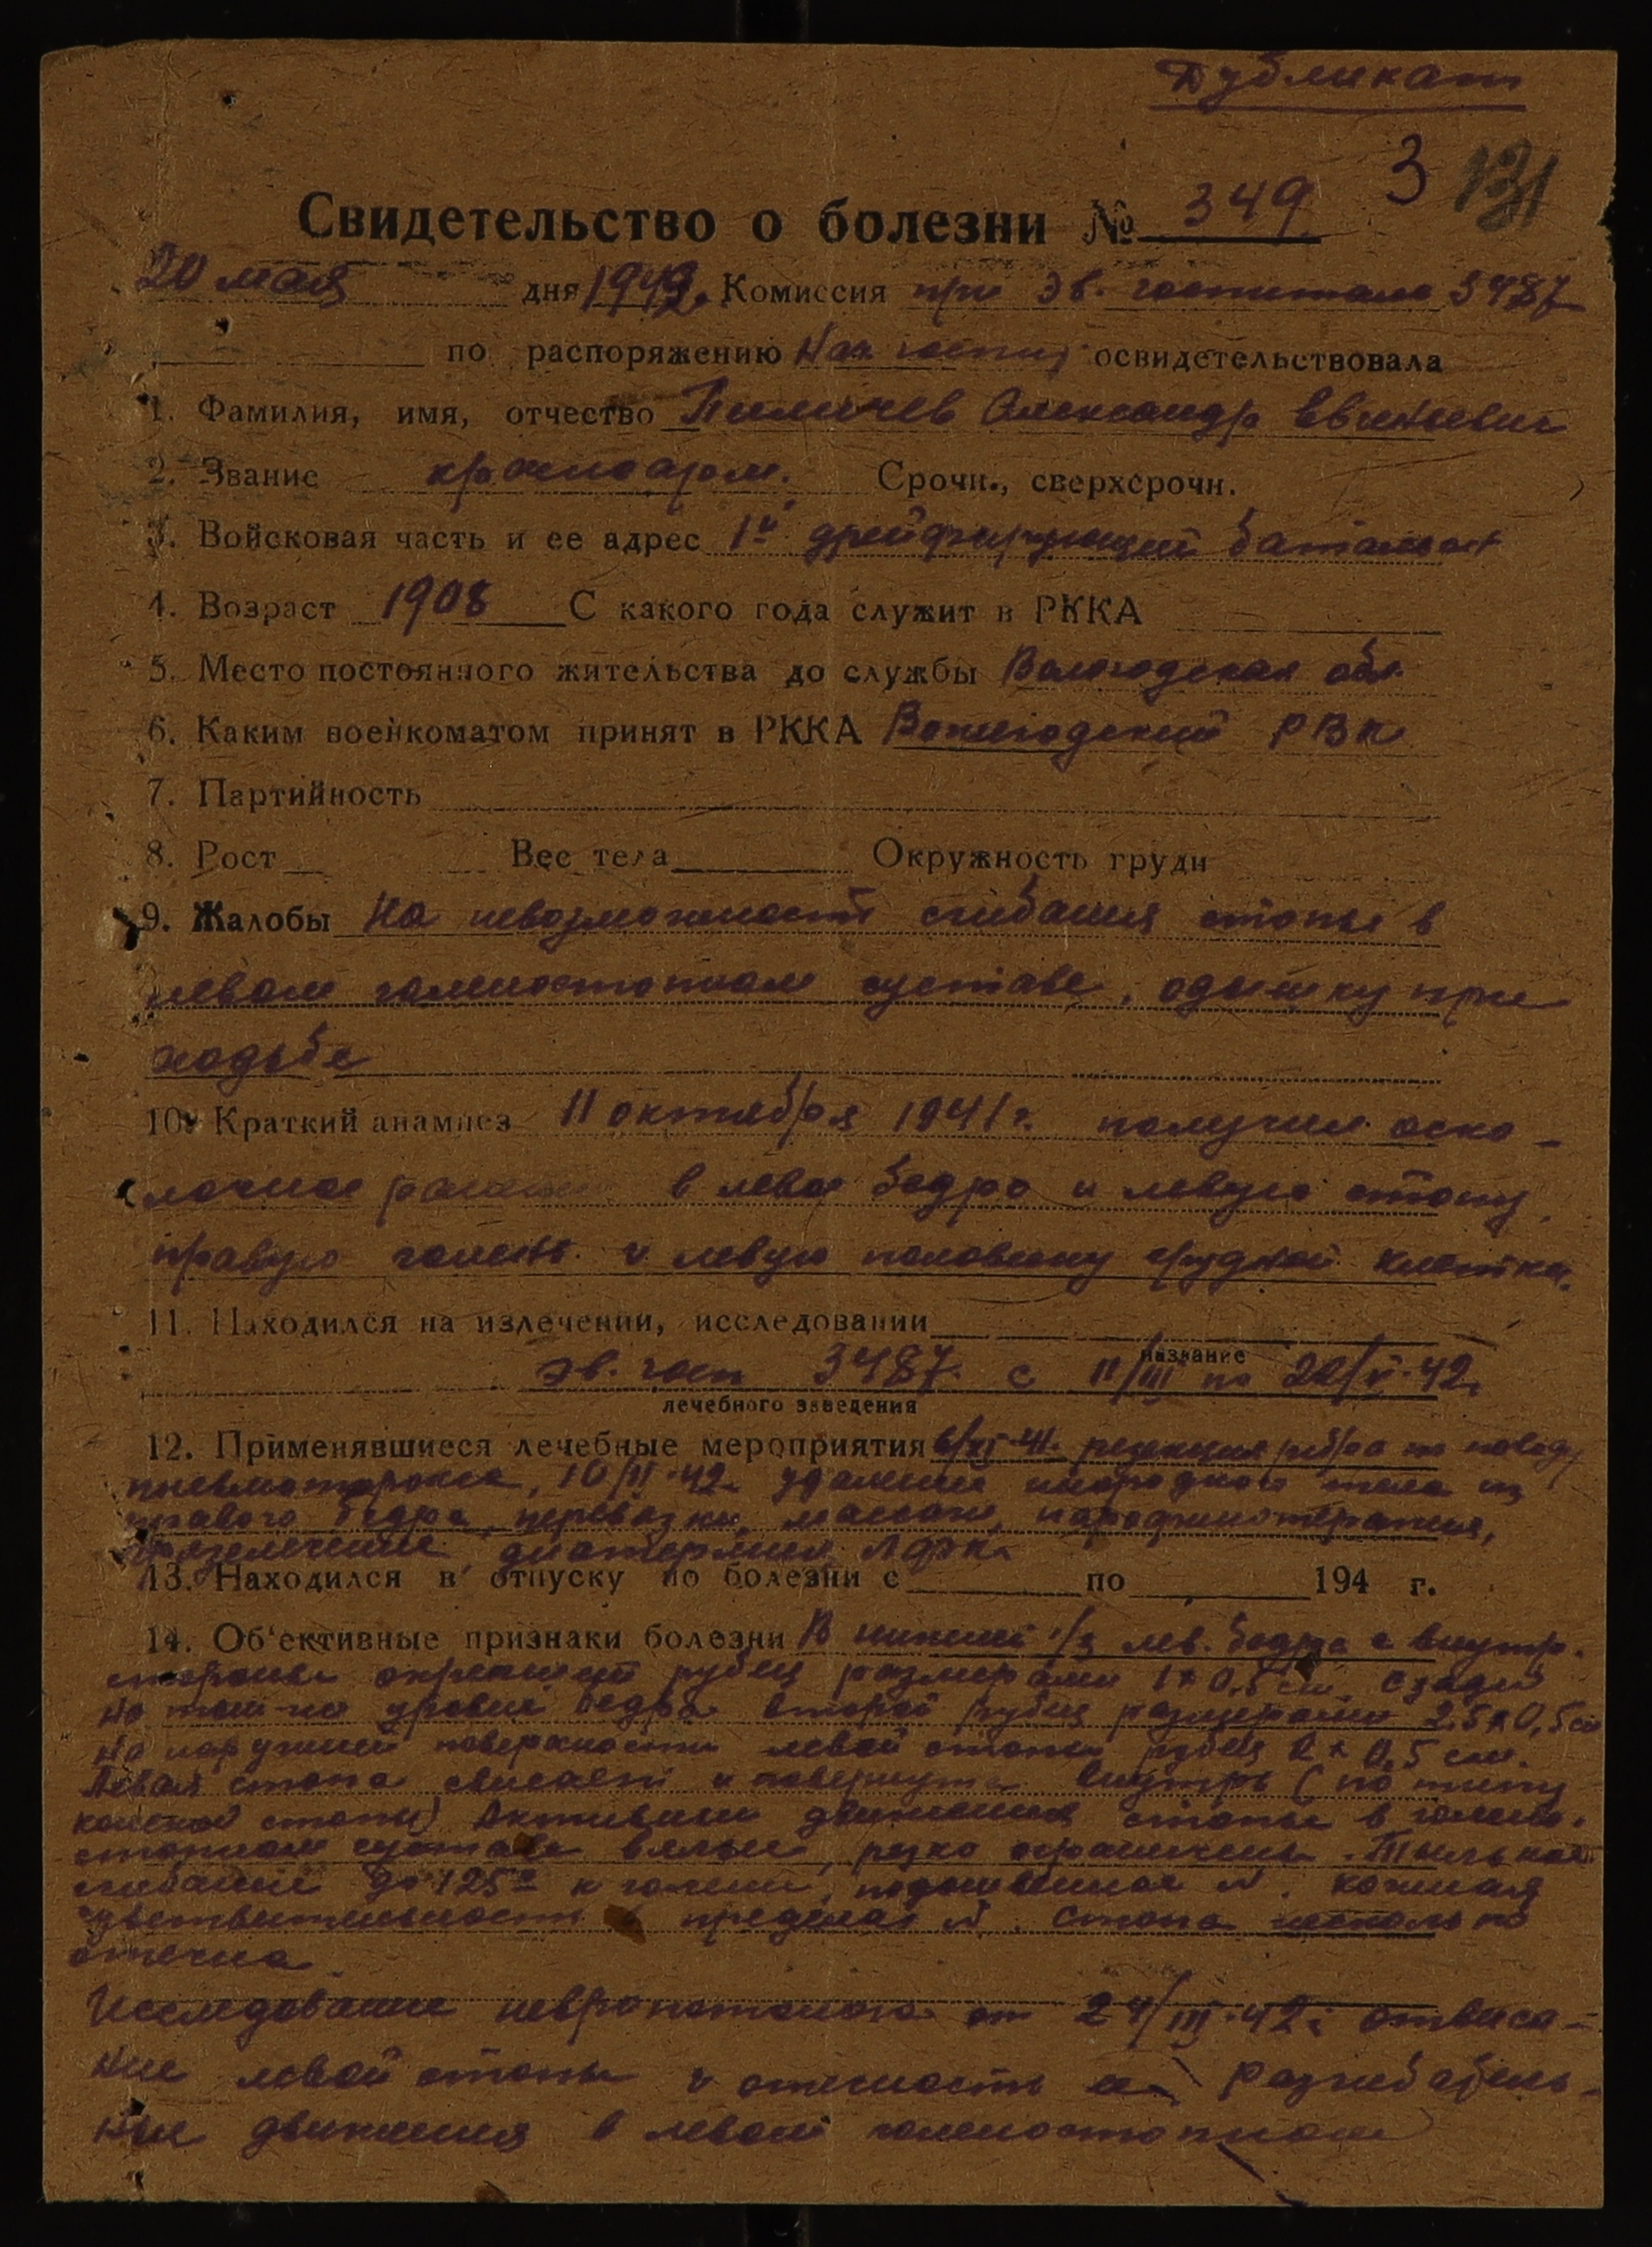 Дубликат
3 131
Свидетельство о болезни № 349
20 мая дня 1942. Комиссия при Эв. госпитале 3487
по распоряжению Нач госпит освидетельствовала
1. Фамилия, имя, отчество Александр
2. Звание красноарм. Срочн., сверхсрочн.
3. Войсковая часть и ее адрес 1й дрейфирующий батальон
4. Возраст 1908 С какого года служит в РККА
5. Место постоянного жительства до службы Вологодская обл.
6. Каким военкоматом принят в РККА Вожегодский РВК
7. Партийность
8. Рост Вес тела Окружность груди
9. Жалобы На невозможность сгибания стопы в
левом голеностопном суставе, одышку при
ходьбе
10. Краткий анамнез 11 октября 1941 г. получил оско-
лочное ранение в левое бедро и левую стопу,
правую голень и левую половину грудной клетки.
11. Находился на излечении, исследовании
название
эв. госп 3487 с 11/III по 20/V-42.
лечебного заведения
12. Применявшиеся лечебные мероприятия 6/XI-41. резекция ребра по поводу
пневмоторокса, 10/II-42. удаление инородного тела из
правого бедра, перевязки, массаж, парафинотерапия,
диатермия, ЛФК.
13. Находился в отпуску по болезни с по 194 г.
14. Об'ективные признаки болезни В нижней 1/3 лев. бедра с внутр.
стороны округлый рубец размерами 1×0,5 см. Сзади
на том же уровне бедра второй рубец размерами 2.5×0,5 см
На наружней поверхности левой стопы рубец 2×0,5 см.
Левая стопа свисает и повернута внутрь (по типу
конской стопы) Активные движения стопы в голено-
стопном суставе вялые, резко ограничены. Тыльное
сгибание до 125° к голени, подошвенное N. Кожная
чувствительность в пределах N. Стопа несколько
отечна
Исследование невропатолога от 24/III-42: отвиса-
ние левой стопы и отечность ее. Разгибатель-
ные движения в левом голеностопном